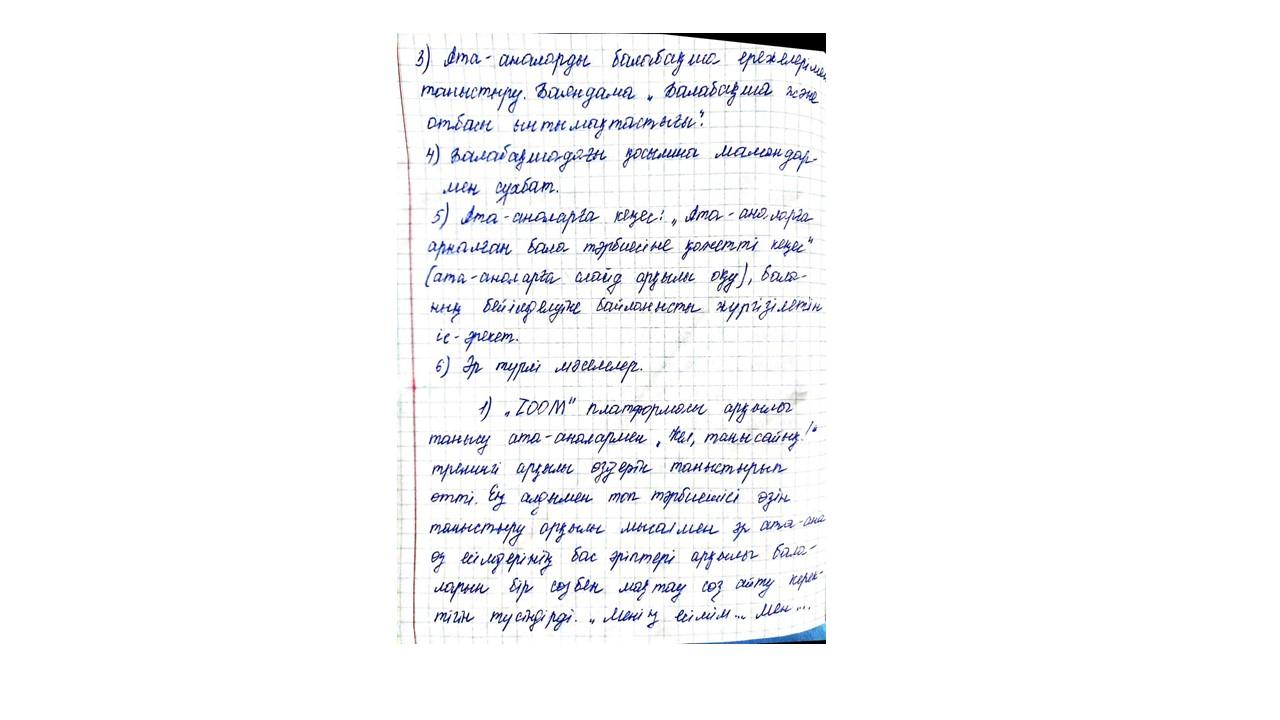 3) Ата-аналарды балабақша ережелерімен
таныстыру. Баяндама „Балабақша және
отбасы ынтымақтастығы".
4) Балабақшадағы қосымша мамандар-
мен сұхбат.
5) Ата-аналарға кеңес: „Ата-аналарға
арналған бала тәрбиесіне қажетті кеңес"
(ата-аналарға слайд арқылы оқу), бала-
ның бейімделуіне байланысты жүргізілетін
іс-әрекет.
6) Әр түрлі мәселелер.
1) „ZOOM" платформасы арқылы
танысу ата-аналармен „Кел, танысайық!"
тренингі арқылы өздерін таныстырып
өтті. Ең алдымен топ тәрбиешісі өзін
таныстыру арқылы мысалмен әр ата-ана
өз есімдерінің бас әріптері арқылы бала-
ларын бір сөзбен мақтау сөз айту керек-
тігін түсіндірді. „Менің есімім... Мен...